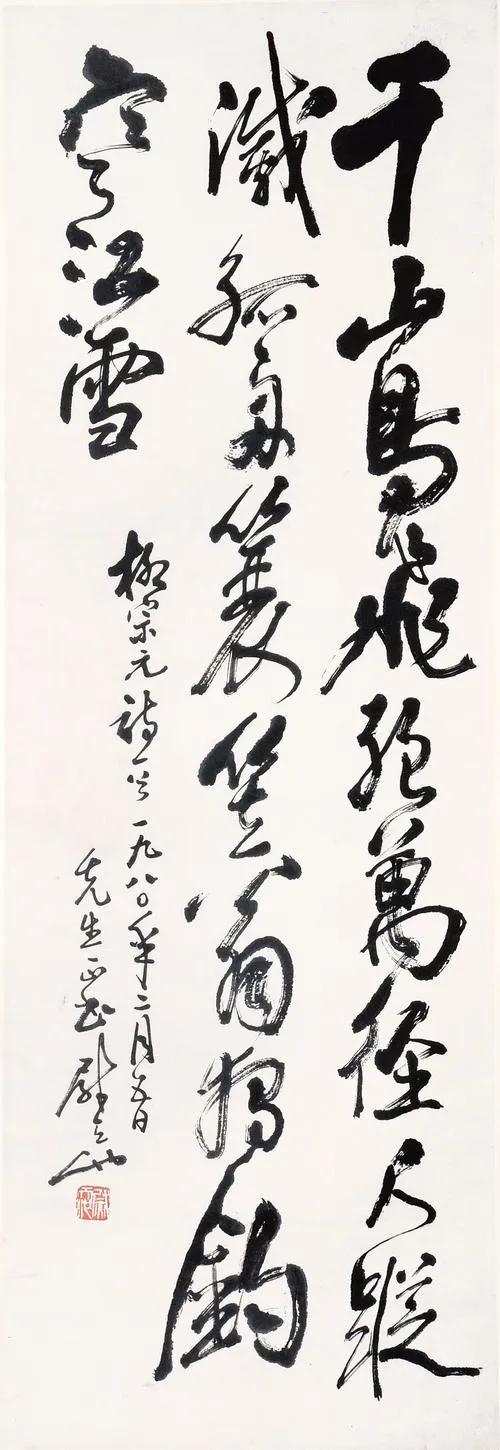 千山鳥飛絕萬徑人蹤
滅孤舟簑笠翁獨釣
寒江雪
柳宗元詩一首一九八〇年二月五日
先生正書尉天池